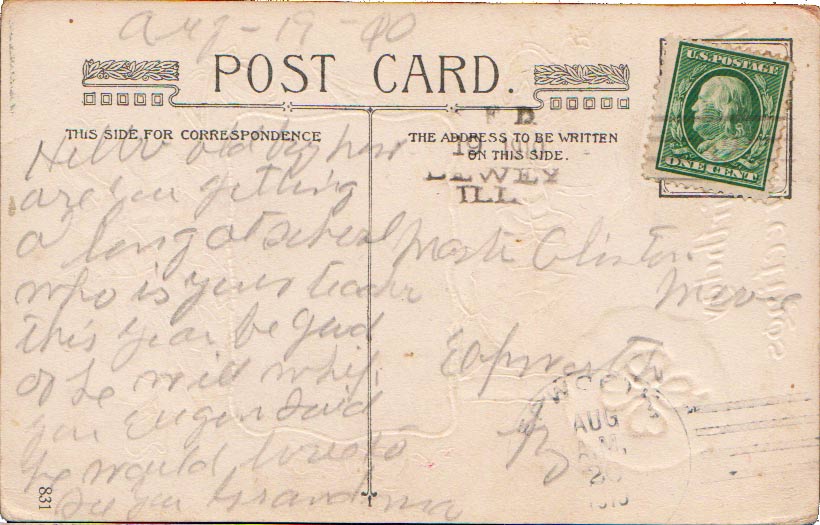 Aug-19-
U.S. POSTAGE
POST CARD.
ONE CENT
THIS SIDE FOR CORRESPONDENCE
THE ADDRESS TO BE WRITTEN
ON THIS SIDE.
19
DEWEY
ILL
Hello old boy how
are you getting
a long at school
who is your teacher
this year be good
or he will whip
you Eugen said
he would love to
See you Grandma
Clinton
Epworth
AUG
831